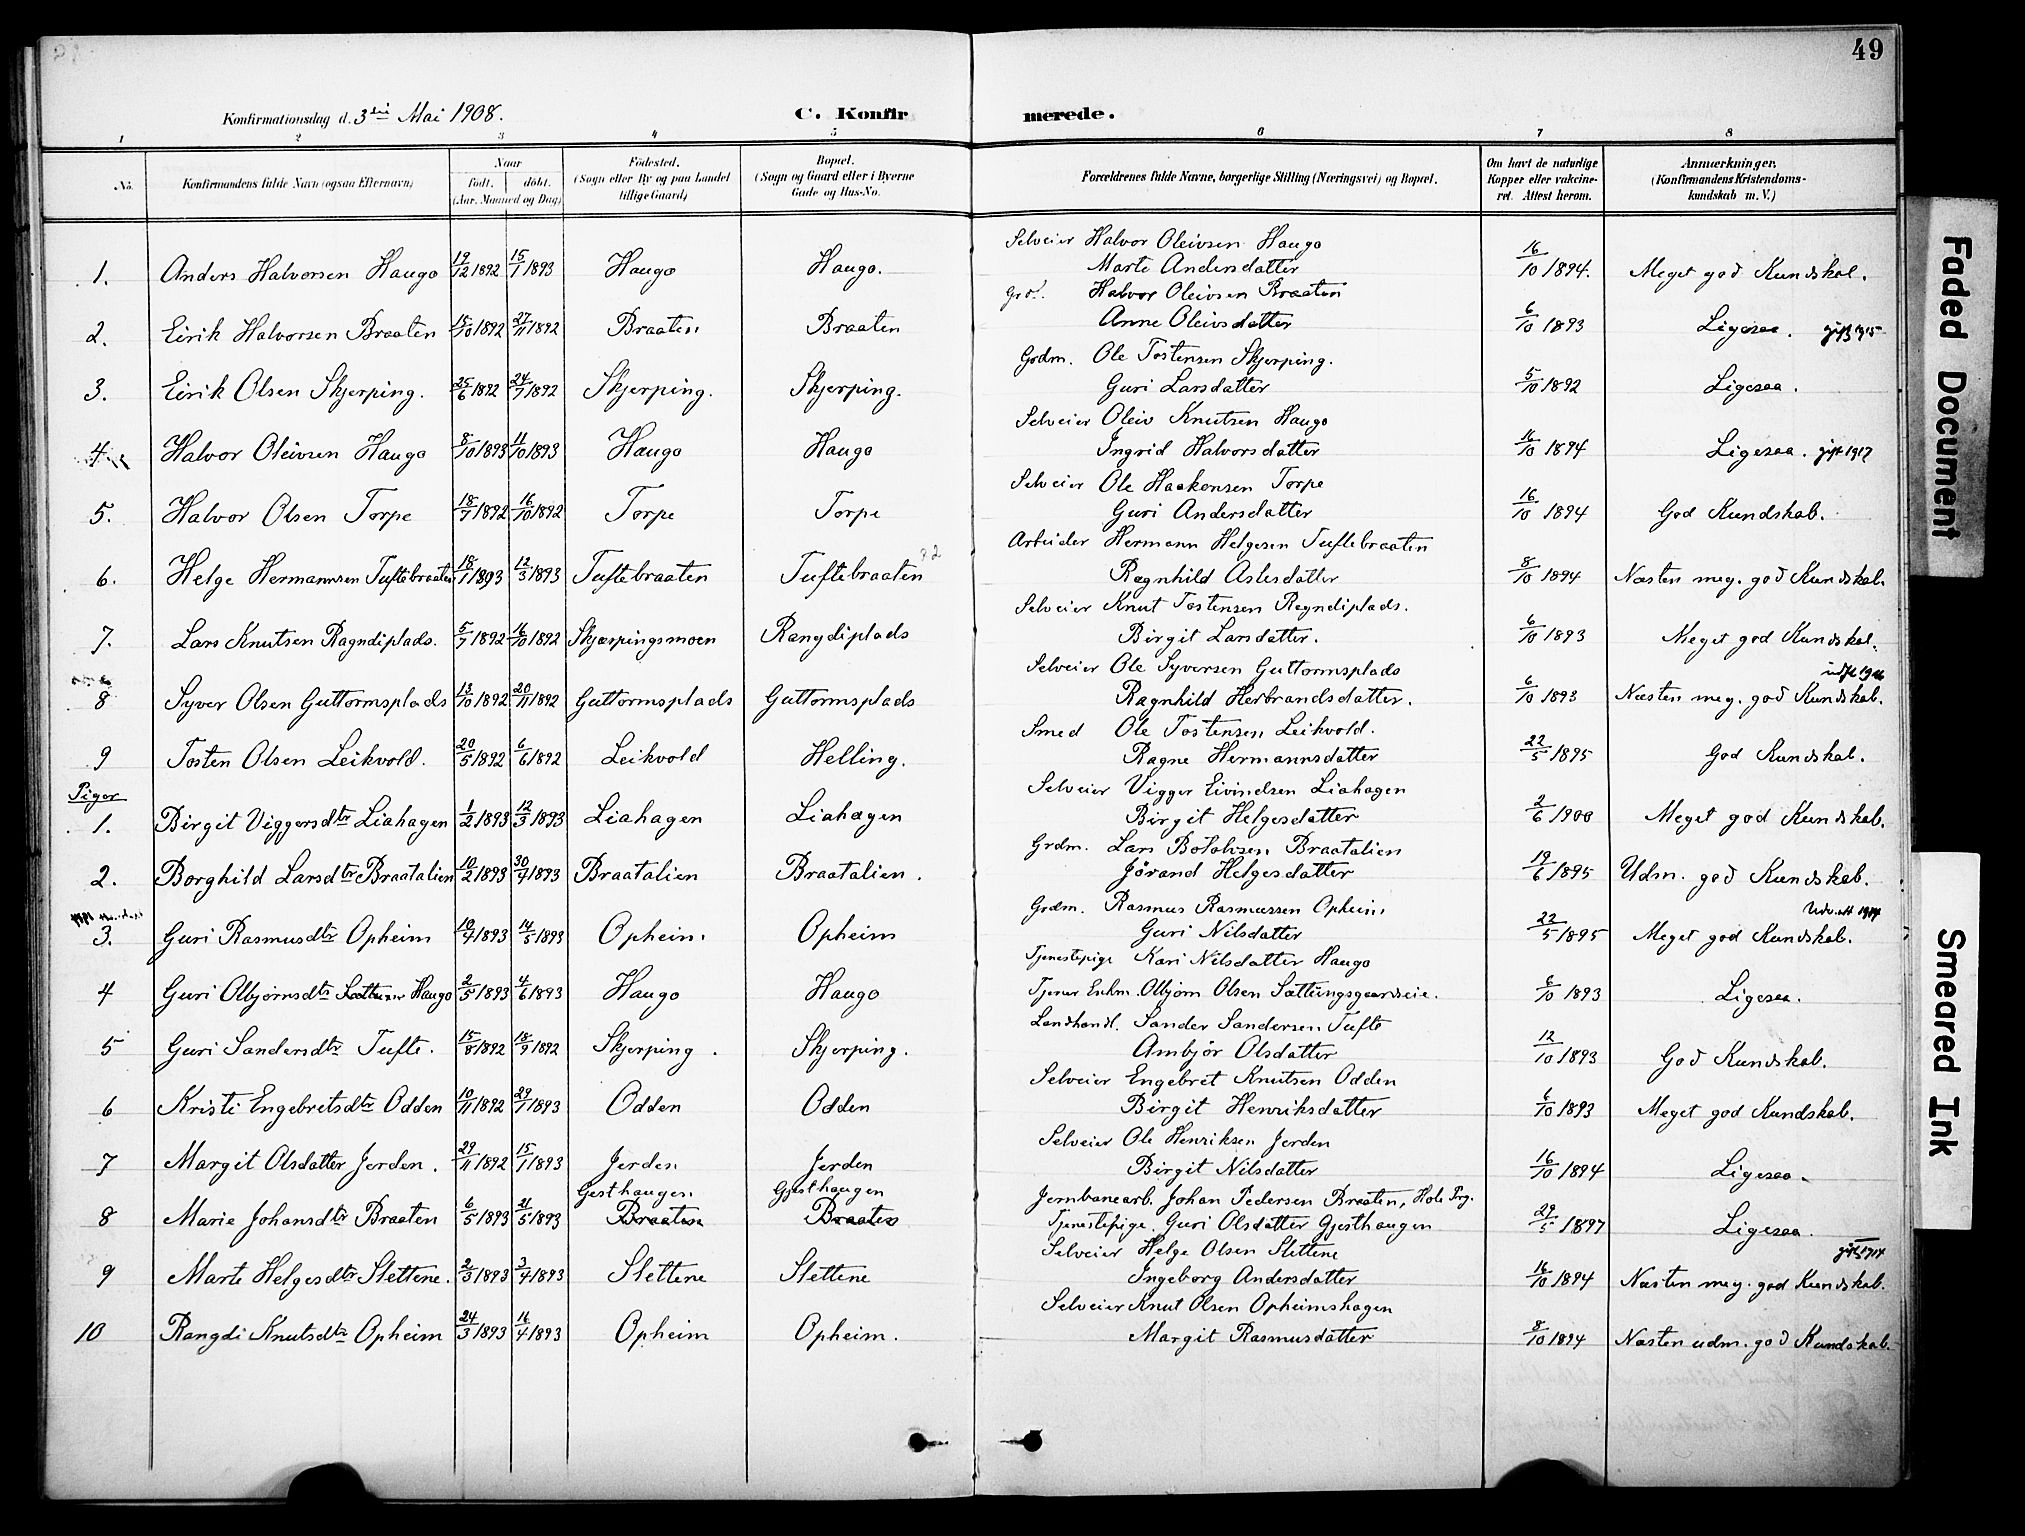 49
Konfirmationsdag d. 3die Mai 1908. C. Konfirmerede.
1 2 3 4 5 6 7 8
No. Konfirmandens fulde Navn (ogsaa Efternavn) Naar født. døbt. (Aar. Maaned og Dag) Fødested. (Sogn eller By og paa Landet tillige Gaard) Bopæl. (Sogn og Gaard eller i Byerne Gade og Hus-No. Forældrenes fulde Navne, borgerlige Stilling (Næringsvei) og Bopæl. Om havt de naturlige Kopper eller vakcineret. Attest herom. Anmærkninger. (Konfirmandens Kristendomskundskab m. V.)
Selveier Halvor Oleivsen Haugo
1. Anders Halvorsen Haugo 19/12 1892 15/1 1893 Haugo Haugo. Marte Andersdatter 16/10 1894. Meget god Kundskab.
Halvor Oleivsen Braaten
2. Eirik Halvorsen Braaten 15/10 1892 27/11 1892 Braaten Braaten Anne Oleivsdatter 6/10 1893 Ligesaa. gift 1915
Grdm. Ole Tostensen Skjerping.
3. Eirik Olsen Skjerping. 25/6 1892 24/7 1892 Skjerping. Skjerping. Guri Larsdatter 5/10 1892 Ligesaa.
Selveier Oleiv Knutsen Haugo
4. Halvor Oleivsen Haugo 8/10 1893 11/10 1893 Haugo Haugo Ingrid Halvorsdatter 16/10 1894 Ligesaa. gift 1917
Selveier Ole Haakensen Torpe
5. Halvor Olsen Torpe 18/7 1892 16/10 1892 Torpe Torpe Guri Andersdatter 16/10 1894 God Kundskab.
Arbeider Hermann Helgesen Tuftebraaten
6. Helge Hermannsen Tuftebraaten 18/1 1893 12/3 1893 Tuftebraaten Tuftebraaten Ragnhild Aslesdatter 8/10 1894 Næsten meg. god Kundskab.
Selveier Knut Tostensen Ragndiplads.
7. Lars Knutsen Ragndiplads. 5/7 1892 16/10 1892 Skjerpingsmoen Rangdiplads Birgit Larsdatter. 6/10 1893 Meget god Kundskab.
Selveier Ole Syversen Guttormsplads
8 Syver Olsen Guttormsplads 13/10 1892 20/11 1892 Guttormsplads Guttormsplads Ragnhild Herbrandsdatter. 6/10 1893 Næsten meg. god Kundskab.
Smed Ole Tostensen Leikvold.
9 Tosten Olsen Leikvold. 20/5 1892 6/6 1892 Leikvold Helling. Ragne Hermannsdatter 22/5 1895 God Kundskab.
Piger
Selveier Vigger Eivindsen Liahagen
1. Birgit Viggersdtr Liahagen 1/2 1893 12/3 1893 Liahagen Liahagen Birgit Helgesdatter 2/6 1900 Meget god Kundskab.
Grdm. Lars Botolvsen Braatalien
2. Borghild Larsdtr Braatalien 10/2 1893 30/7 1893 Braatalien Braatalien. Jørand Helgesdatter 19/6 1895 Udm. god Kundskab.
Grdm. Rasmus Rasmussen Opheim
3. Guri Rasmusdtr Opheim 10/4 1893 14/5 1893 Opheim Opheim Guri Nilsdatter 22/5 1895 Meget god Kundskab.
Tjenestepige Kari Nilsdatter Haugo
4 Guri Olbjørnsdtr Haugo 2/5 1893 4/6 1893 Haugo Haugo Tjener Enkm. Olbjørn Olsen Sattungsgaardseie. 6/10 1893 Ligesaa.
Landhandl. Sander Sandersen Tufte
5 Guri Sandersdtr Tufte. 15/8 1892 18/9 1892 Skjerping. Skjerping. Ambjør Olsdatter 12/10 1893 God Kundskab.
Selveier Engebret Knutsen Odden
6 Kristi Engebretsdtr Odden 10/11 1892 29/1 1893 Odden Odden Birgit Henriksdatter 6/10 1893 Meget god Kundskab.
Selveier Ole Henriksen Jorden
7 Margit Olsdatter Jorden. 29/11 1892 15/1 1893 Jorden Jorden Birgit Nilsdatter 16/10 1894 Ligesaa.
Gjesthaugen Gjesthaugen Jernbanearb. Johan Pedersen Braaten, Hole Prg.
8 Marie Johansdtr Braaten 6/5 1893 21/5 1893 Braaten Braaten Tjenestepige. Guri Olsdatter Gjesthaugen 29/5 1897 Ligesaa.
Selveier Helge Olsen Slettene gift 1914
9 Marte Helgesdtr Slettene. 2/3 1893 3/4 1893 Slettene Slettene Ingeborg Andersdatter 16/10 1894 Næsten meg. god Kundskab.
Selveier Knut Olsen Opheimshagen
10 Rangdi Knutsdtr Opheim 24/3 1893 16/4 1893 Opheim Opheim. Margit Rasmusdatter 8/10 1894 Næsten udm. god Kundskab.
Faded Document
Smeared Ink